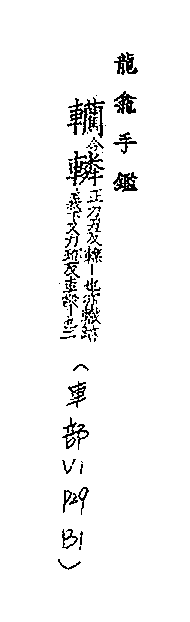 龍龕手鑑
轥今轔正力刃反轢丨也亦轍
義下又力珎反車聲丨也二
(車部V1P29B1)